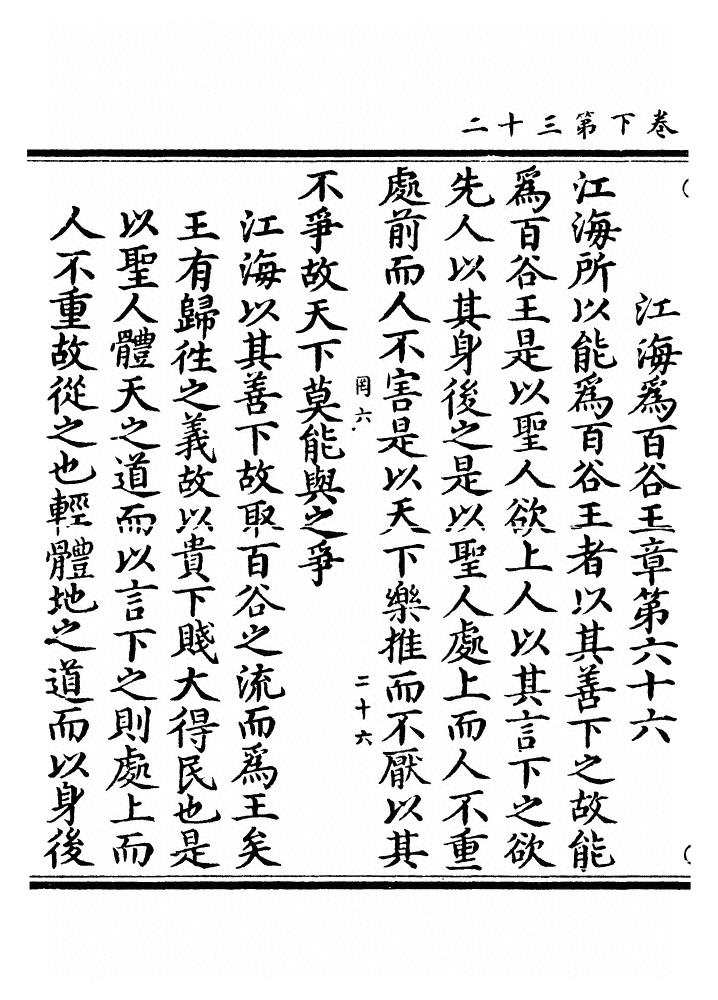 卷下第三十二
江海爲百谷王章第六十六
江海所以能爲百谷王者以其善下之故能
爲百谷王是以聖人欲上人以其言下之欲
先人以其身後之是以聖人處上而人不重
處前而人不害是以天下樂推而不厭以其
罔六
二十六
不爭故天下莫能與之爭
江海以其善下故取百谷之流而爲王矣
王有歸徃之義故以貴下賤大得民也是
以聖人體天之道而以言下之則處上而
人不重故從之也輕體地之道而以身後